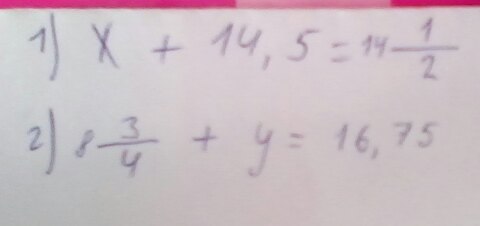 1) x + 14,5 = 14 1/2
2) 8 3/4 + y = 16,75